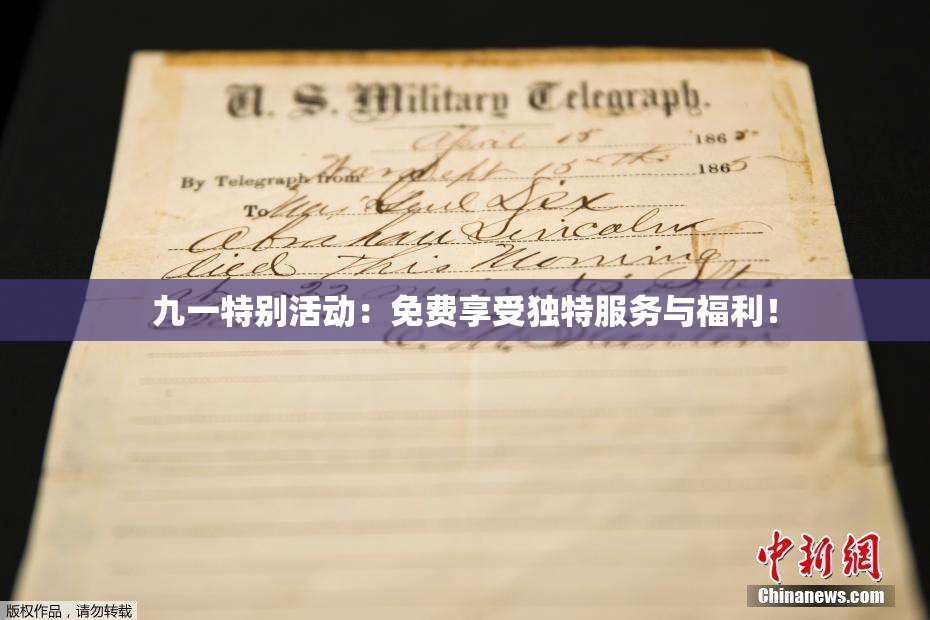 U. S. Military Telegraph.
April 15 1865
By Telegraph from War Dept 15th 1865
To Maj Genl Dix
Abraham Lincoln
died This Morning
at 22 minutes after
九一特别活动：免费享受独特服务与福利！
中新網
Chinanews.com
版权作品，请勿转载